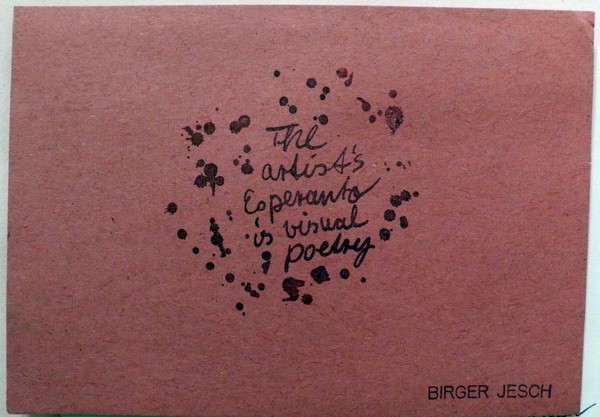 The
artist's
Esperanto
is visual
poetry
BIRGER JESCH